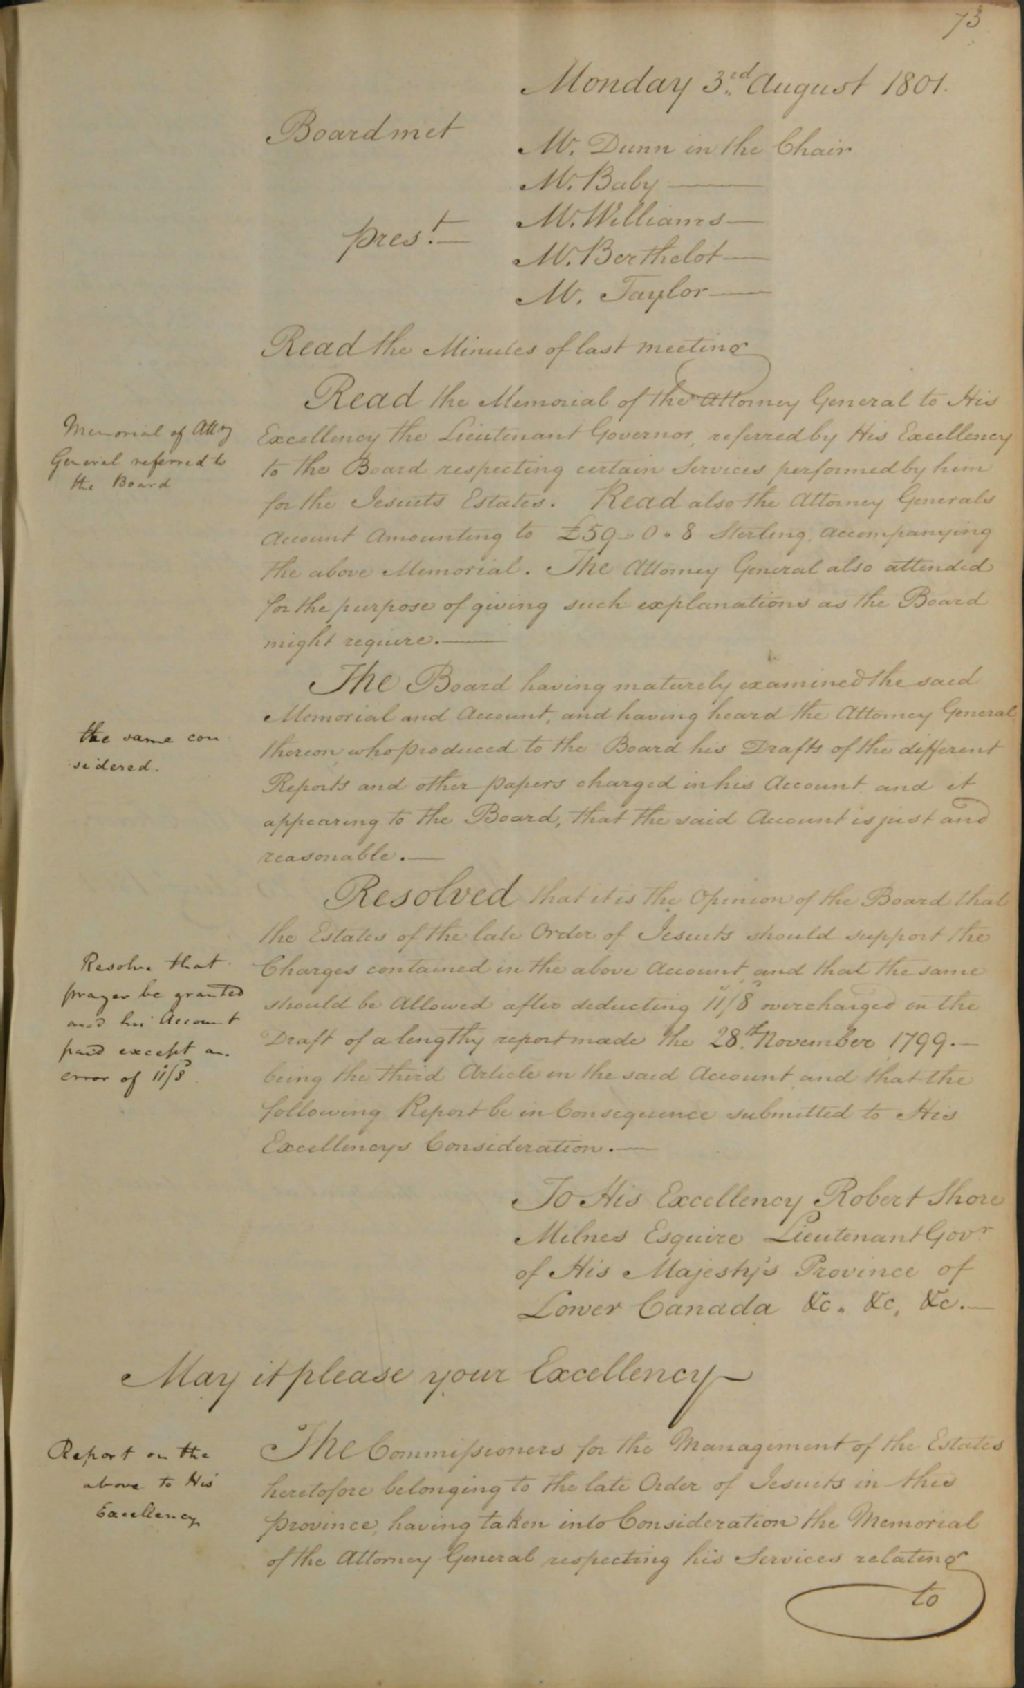 73
Monday 3rd August 1801.
Board met
Mr. Dunn in the Chair
Mr. Baby
Mr. Williams
pres.t
Mr. Berthelot
Mr. Taylor
Read the Minutes of last meeting
Read the Memorial of the Attorney General to His
Memorial of Atty
Excellency the Lieutenant Governor, referred by His Excellency
General referred to
to the Board respecting certain Services performed by him
the Board
for the Jesuits Estates. Read also the Attorney Generals
Account Amounting to £59..0.8 Sterling, accompanying
the above Memorial. The Attorney General also attended
for the purpose of giving such explanations as the Board
might require.
The Board having maturely examined the said
Memorial and Account, and having heard the Attorney General
the same con
thereon, who produced to the Board his Drafts of the different
sidered.
Reports and other papers charged in his Account, and it
appearing to the Board, that the said Account is just and
reasonable.
Resolved that it is the Opinion of the Board that
the Estates of the late Order of Jesuits should support the
Resolve that
Charges contained in the above Account, and that the same
prayer be granted
should be Allowed after deducting 11/8 overcharged in the
and his Account
Draft of a lengthy report made the 28.th November 1799.
paid except an
being the third Article in the said Account, and that the
error of 11/8.
following Report be in Consequence submitted to His
Excellencys Consideration.
To His Excellency Robert Shore
Milnes Esquire Lieutenant Govr
of His Majesty's Province of
Lower Canada &c. &c. &c.
May it please your Excellency
The Commissioners for the Management of the Estates
Report on the
heretofore belonging to the late Order of Jesuits in this
above to His
province, having taken into Consideration the Memorial
Excellency
of the Attorney General respecting his Services relating
to